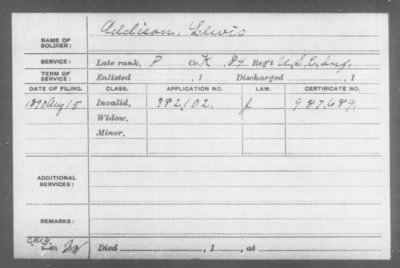 NAME OF SOLDIER: Addison, Lewis
SERVICE: Late rank, P Co. K 84 Reg't U.S.C. Inf.
TERM OF SERVICE: Enlisted , 1 Discharged , 1
DATE OF FILING. CLASS. APPLICATION NO. LAW. CERTIFICATE NO.
1890 Aug 15 Invalid, 982,102. J 987,689.
Widow,
Minor.
ADDITIONAL SERVICES:
REMARKS:
Died , 1 , at